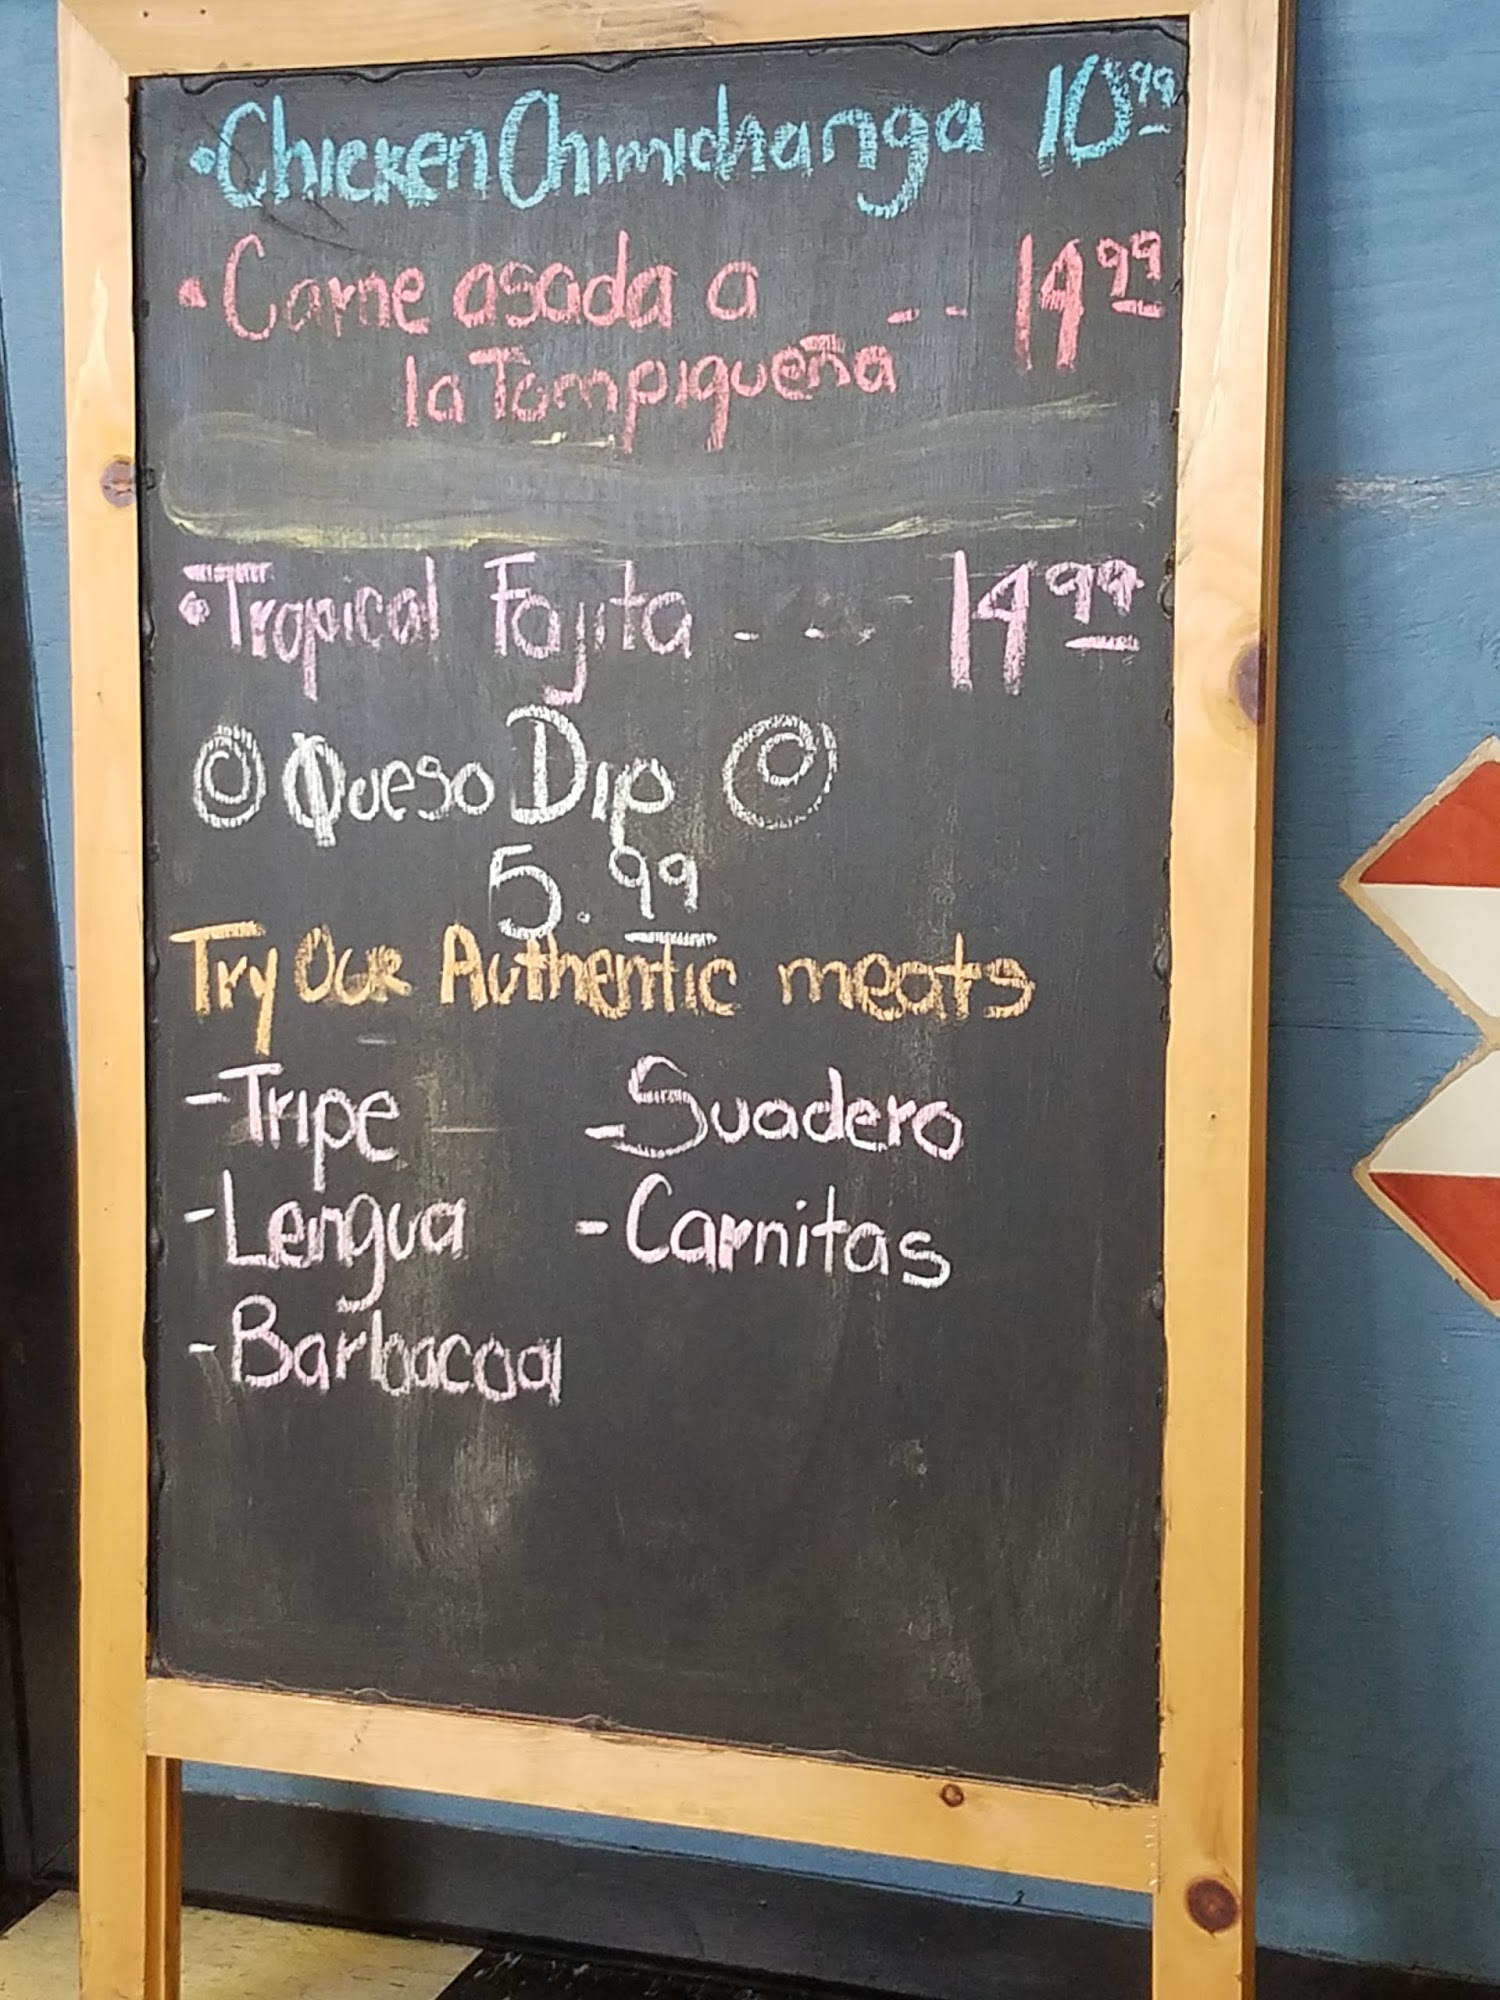 • Chicken Chimichanga 10.99
• Carne asada a -- 14.99
la Tampiqueña
• Tropical Fajita - - - 14.99
Queso Dip
5.99
Try Our Authentic meats
- Tripe - Suadero
- Lengua - Carnitas
- Barbacoa